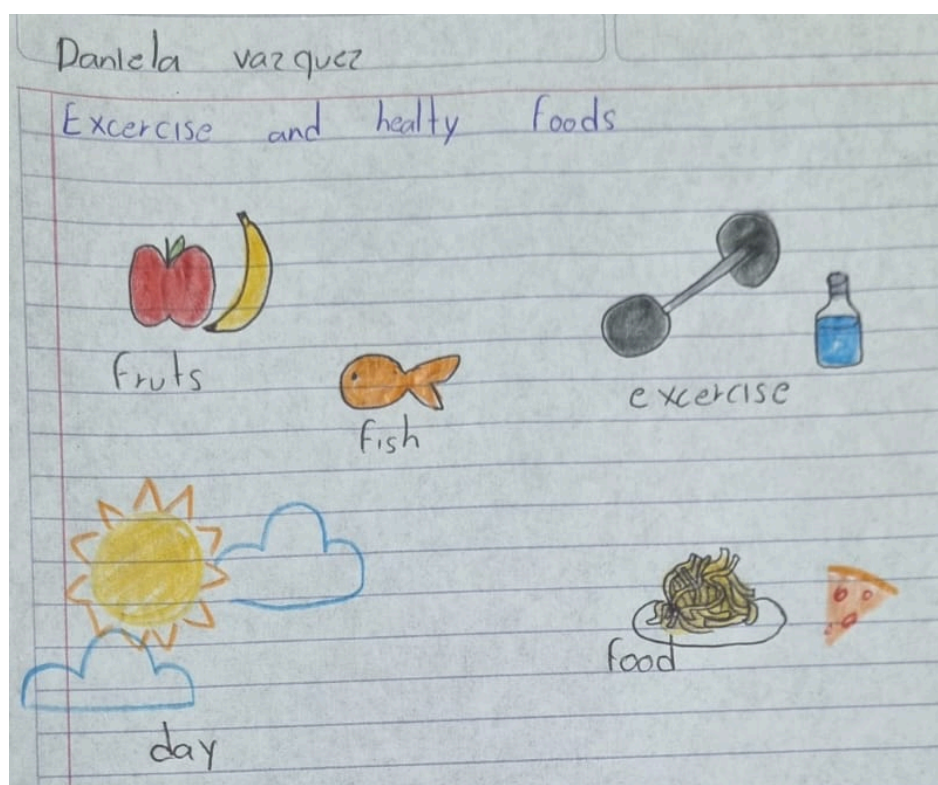 Daniela vazquez
Excercise and healty foods
fruts
excercise
fish
food
day